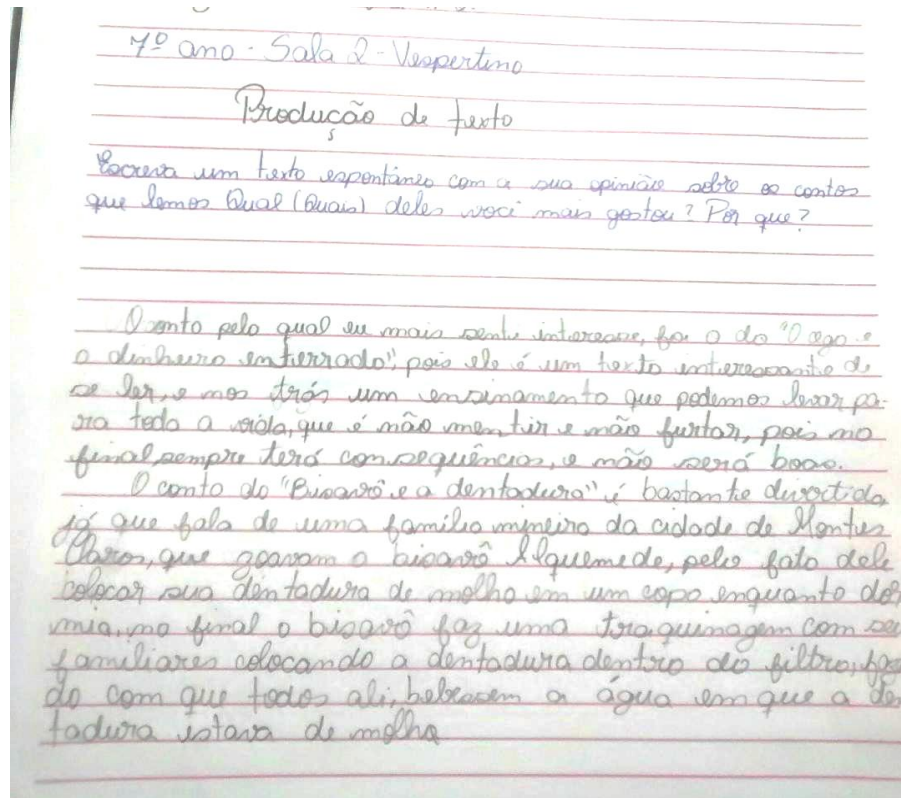 7º ano - Sala 2 - Vespertino
Produção de texto
Escreva um texto espontâneo com a sua opinião sobre os contos
que lemos Qual (Quais) deles você mais gostou? Por que?
O conto pelo qual eu mais senti interesse, foi o do "O cego e
o dinheiro enterrado", pois ele é um texto interessante de
se ler, e nos trás um ensinamento que podemos levar pa-
ra toda a vida, que é não mentir e não furtar, pois no
final sempre terá consequências, e não será boas.
O conto do "Bisavô e a dentadura" é bastante divertido
já que fala de uma família mineira da cidade de Montes
Claros, que zoavam o bisavô Alquemede, pelo fato dele
colocar sua dentadura de molho em um copo enquanto dor
mia, no final o bisavô faz uma traquinagem com seu
familiares colocando a dentadura dentro do filtro, faz
do com que todos ali, bebessem a água em que a den
tadura estava de molho